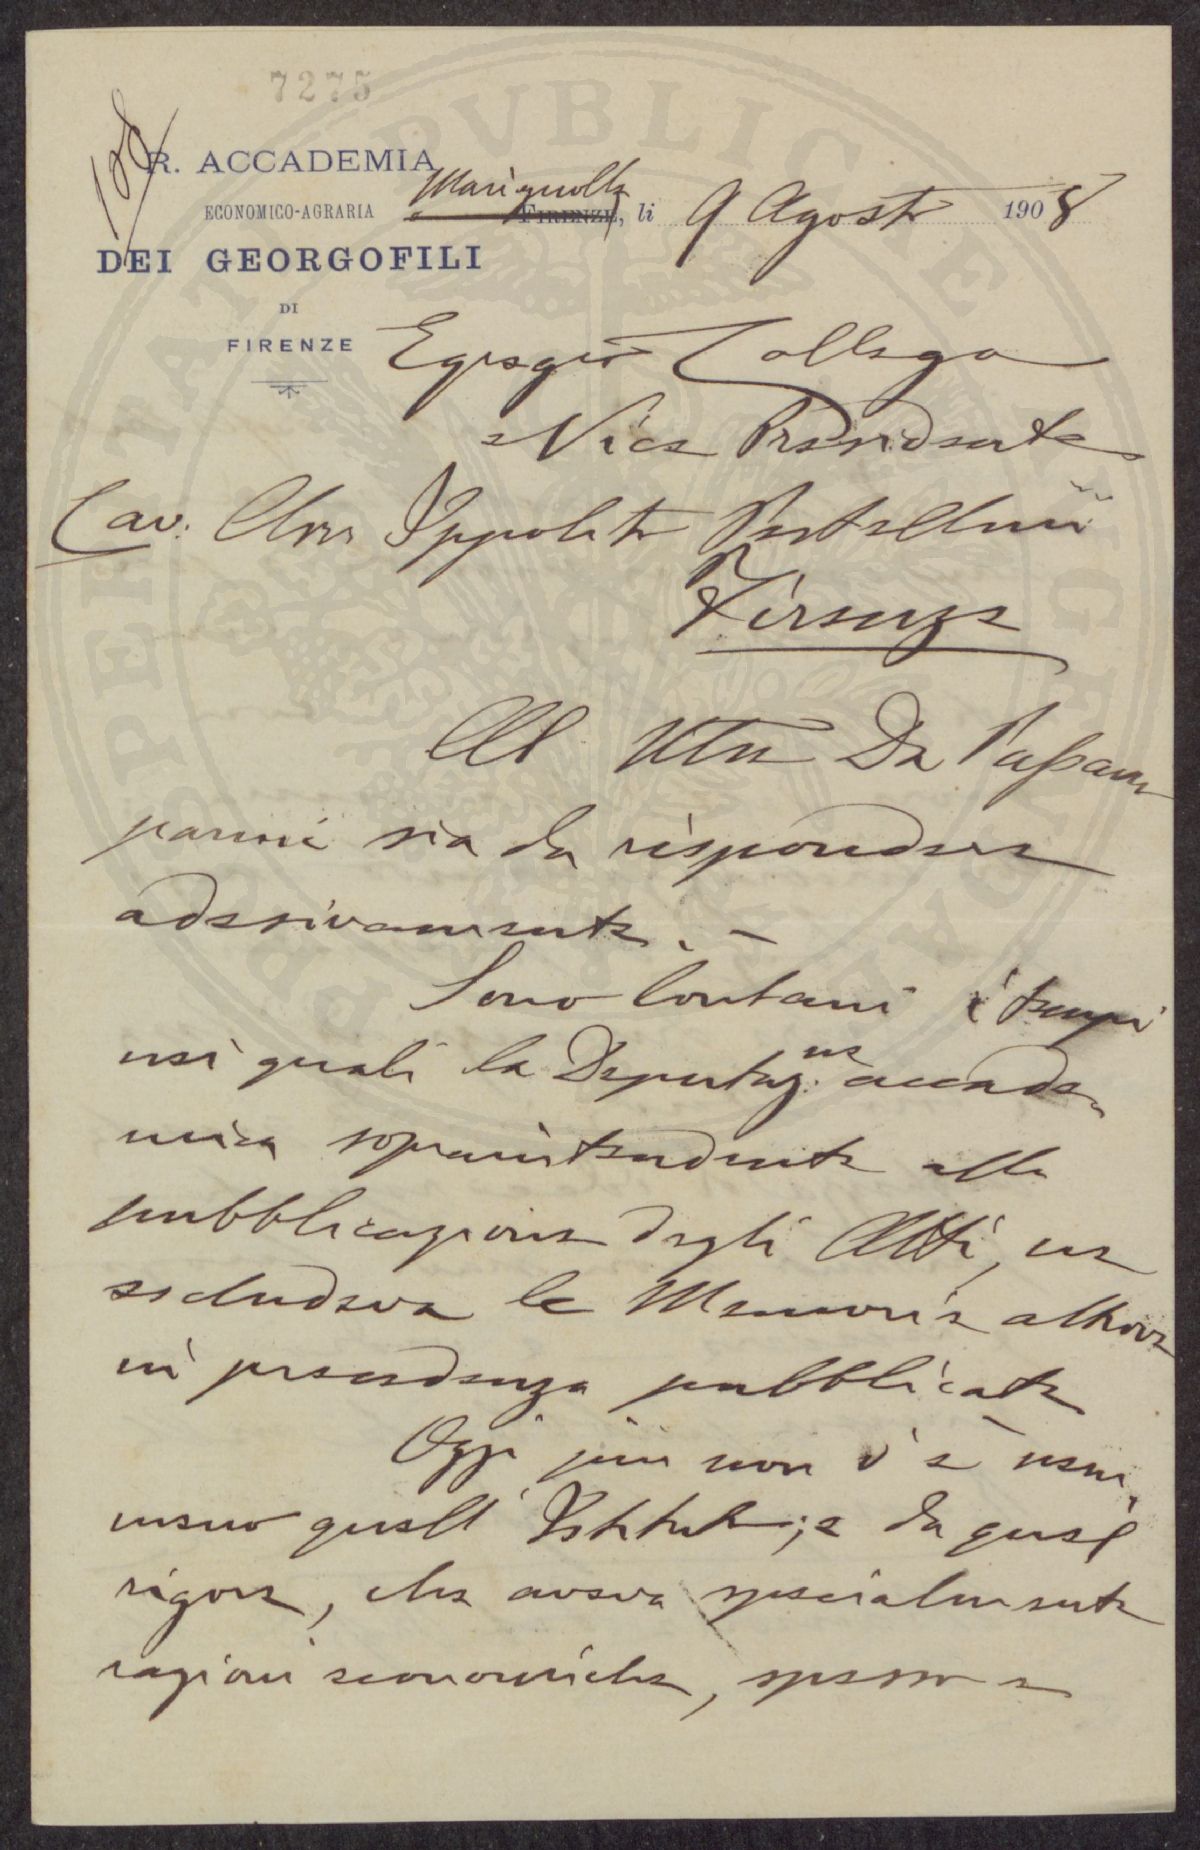 7275
R. ACCADEMIA
ECONOMICO-AGRARIA
DEI GEORGOFILI
DI
FIRENZE
Marignolle
FIRENZE, li 9 Agosto 1908
Egregio Collega
Vice Presidente
Cav. Ippolito Pestellini
Firenze
Al De Passam
parmi sia da rispondere
adesivamente. –
Sono lontani i tempi
nei quali la Deputaz:ne accade-
mica sopraintendente alla
pubblicazione degli Atti, ne
escludeva le Memorie altrove
in precedenza pubblicate
Oggi più non v'è nem
meno quell'Istituto; e da quel
rigore, che aveva specialmente
ragioni economiche, spesso e
PROSPERITATI PVBLICAE AVGENDAE